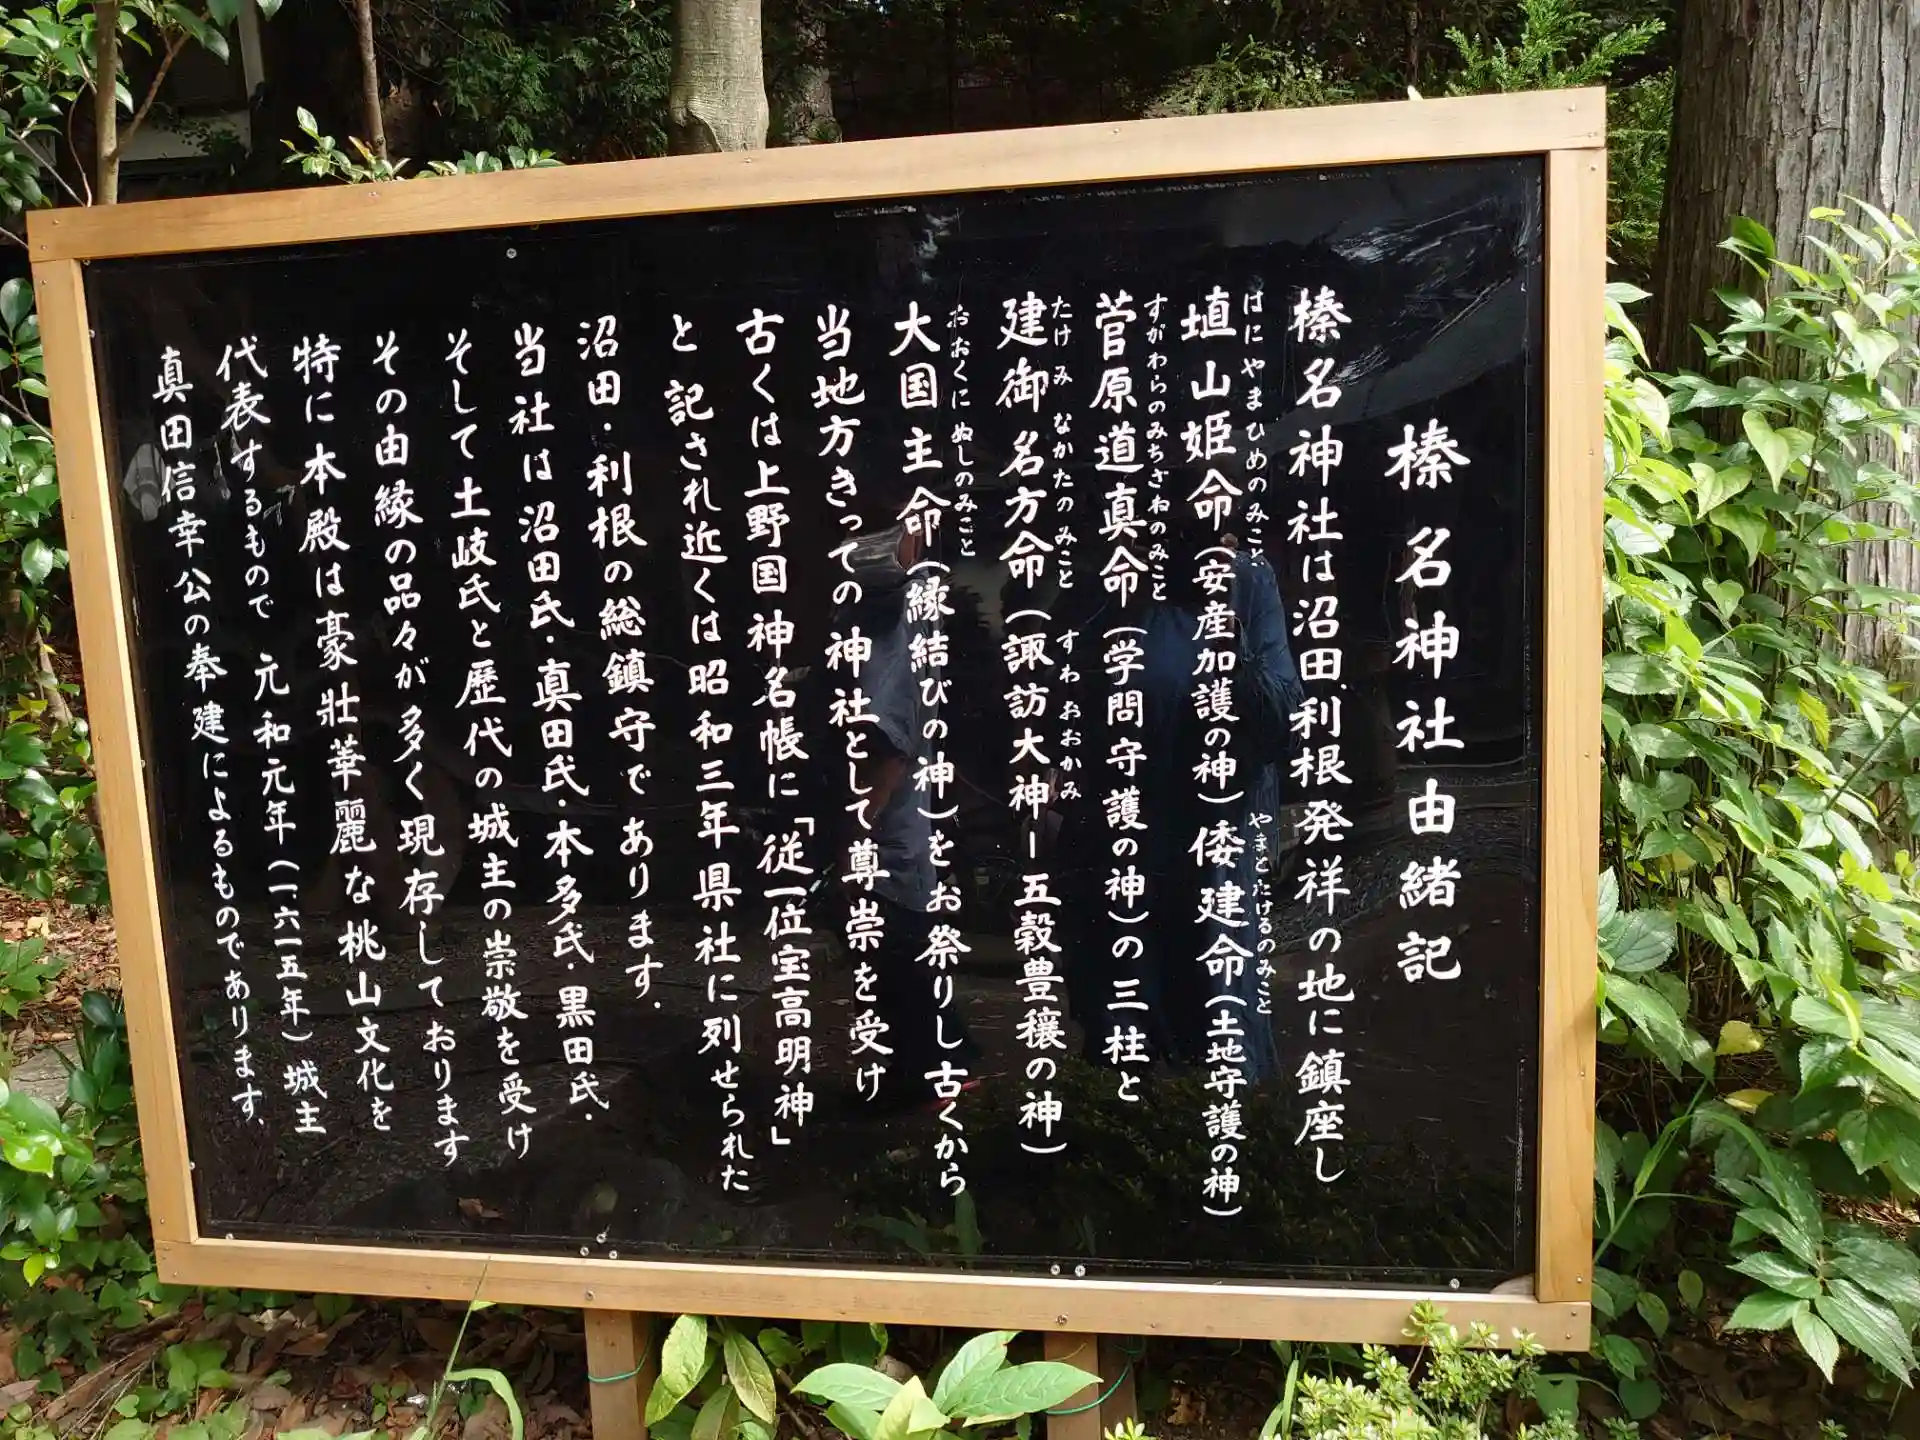 榛名神社由緒記
榛名神社は沼田、利根発祥の地に鎮座し
はにやまひめのみこと やまとたけるのみこと
埴山姫命（安産加護の神）倭建命（土地守護の神）
すがわらのみちざねのみこと
菅原道真命（学問守護の神）の三柱と
たけみなかたのみこと すわおおかみ
建御名方命（諏訪大神ー五穀豊穣の神）
おおくにぬしのみこと
大国主命（縁結びの神）をお祭りし古くから
当地方きっての神社として尊崇を受け
古くは上野国神名帳に「従一位宝高明神」
と記され近くは昭和三年県社に列せられた
沼田・利根の総鎮守であります.
当社は沼田氏・真田氏・本多氏・黒田氏・
そして土岐氏と歴代の城主の崇敬を受け
その由縁の品々が多く現存しております
特に本殿は豪壯華麗な桃山文化を
代表するもので 元和元年（一六一五年）城主
真田信幸公の奉建によるものであります.